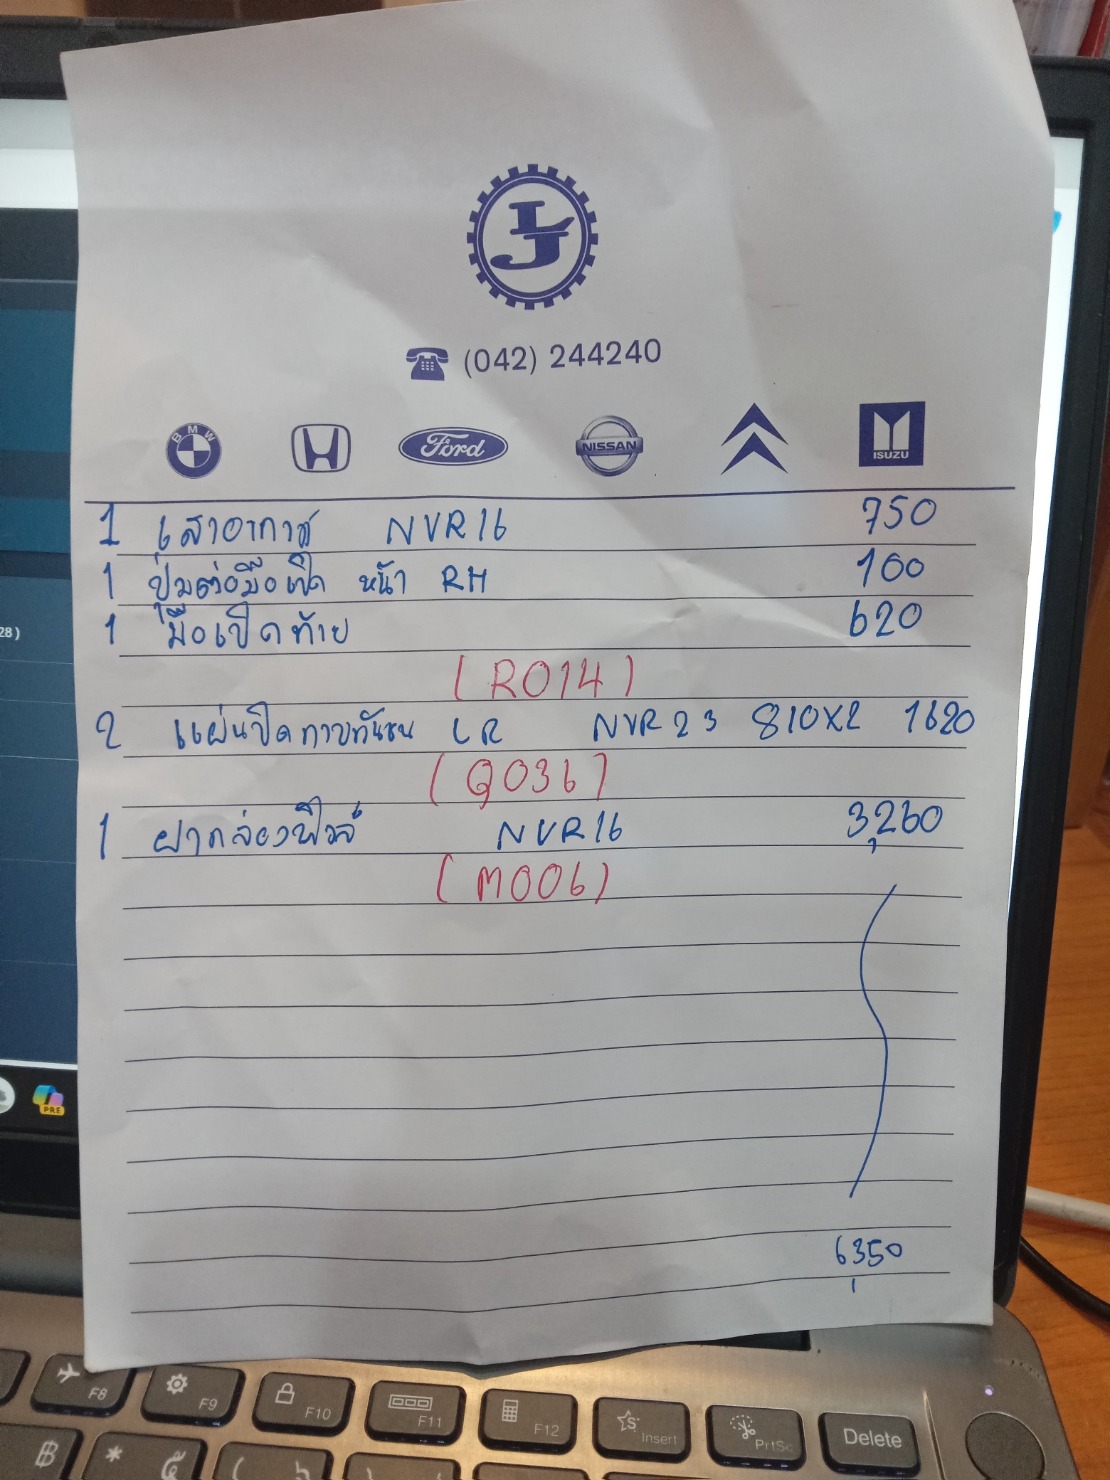 LJ
(042) 244240
BMW
Ford
NISSAN
ISUZU
1 เสาอากาศ NVR16 750
1 ปุ่มต่อมือเปิด หน้า RH 100
1 มือเปิดท้าย 620
(R014)
2 แผ่นปิดทาบกันชน LR NVR23 810X2 1620
(Q036)
1 ฝากล่องฟิวส์ NVR16 3,260
(M006)
6350
28)
PRE
F8
F9
F10
F11
F12
Insert
PrtSc
Delete
฿
*
๕